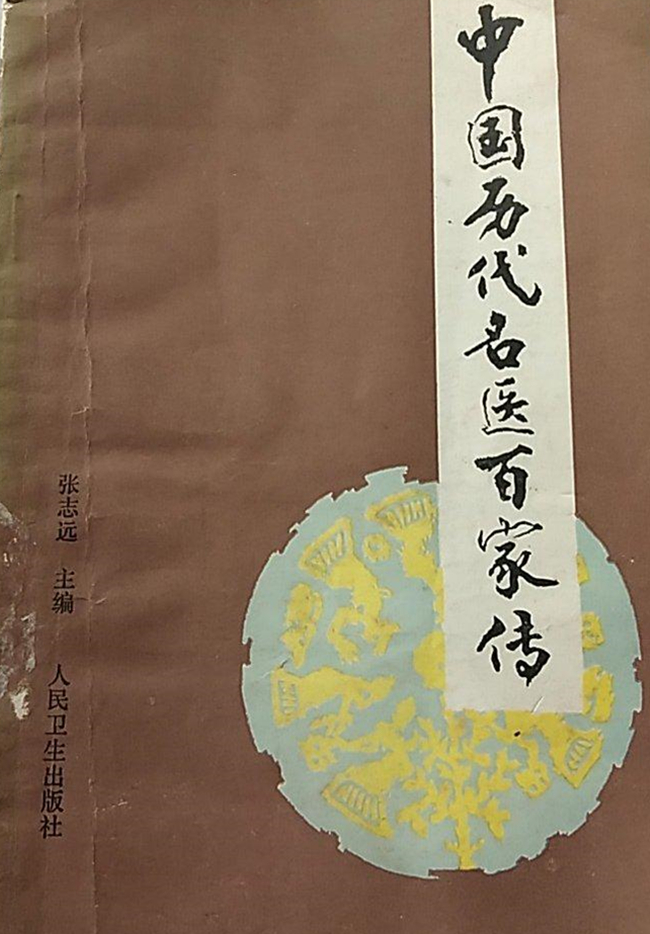 中国历代名医百家传
张志远 主编 人民卫生出版社